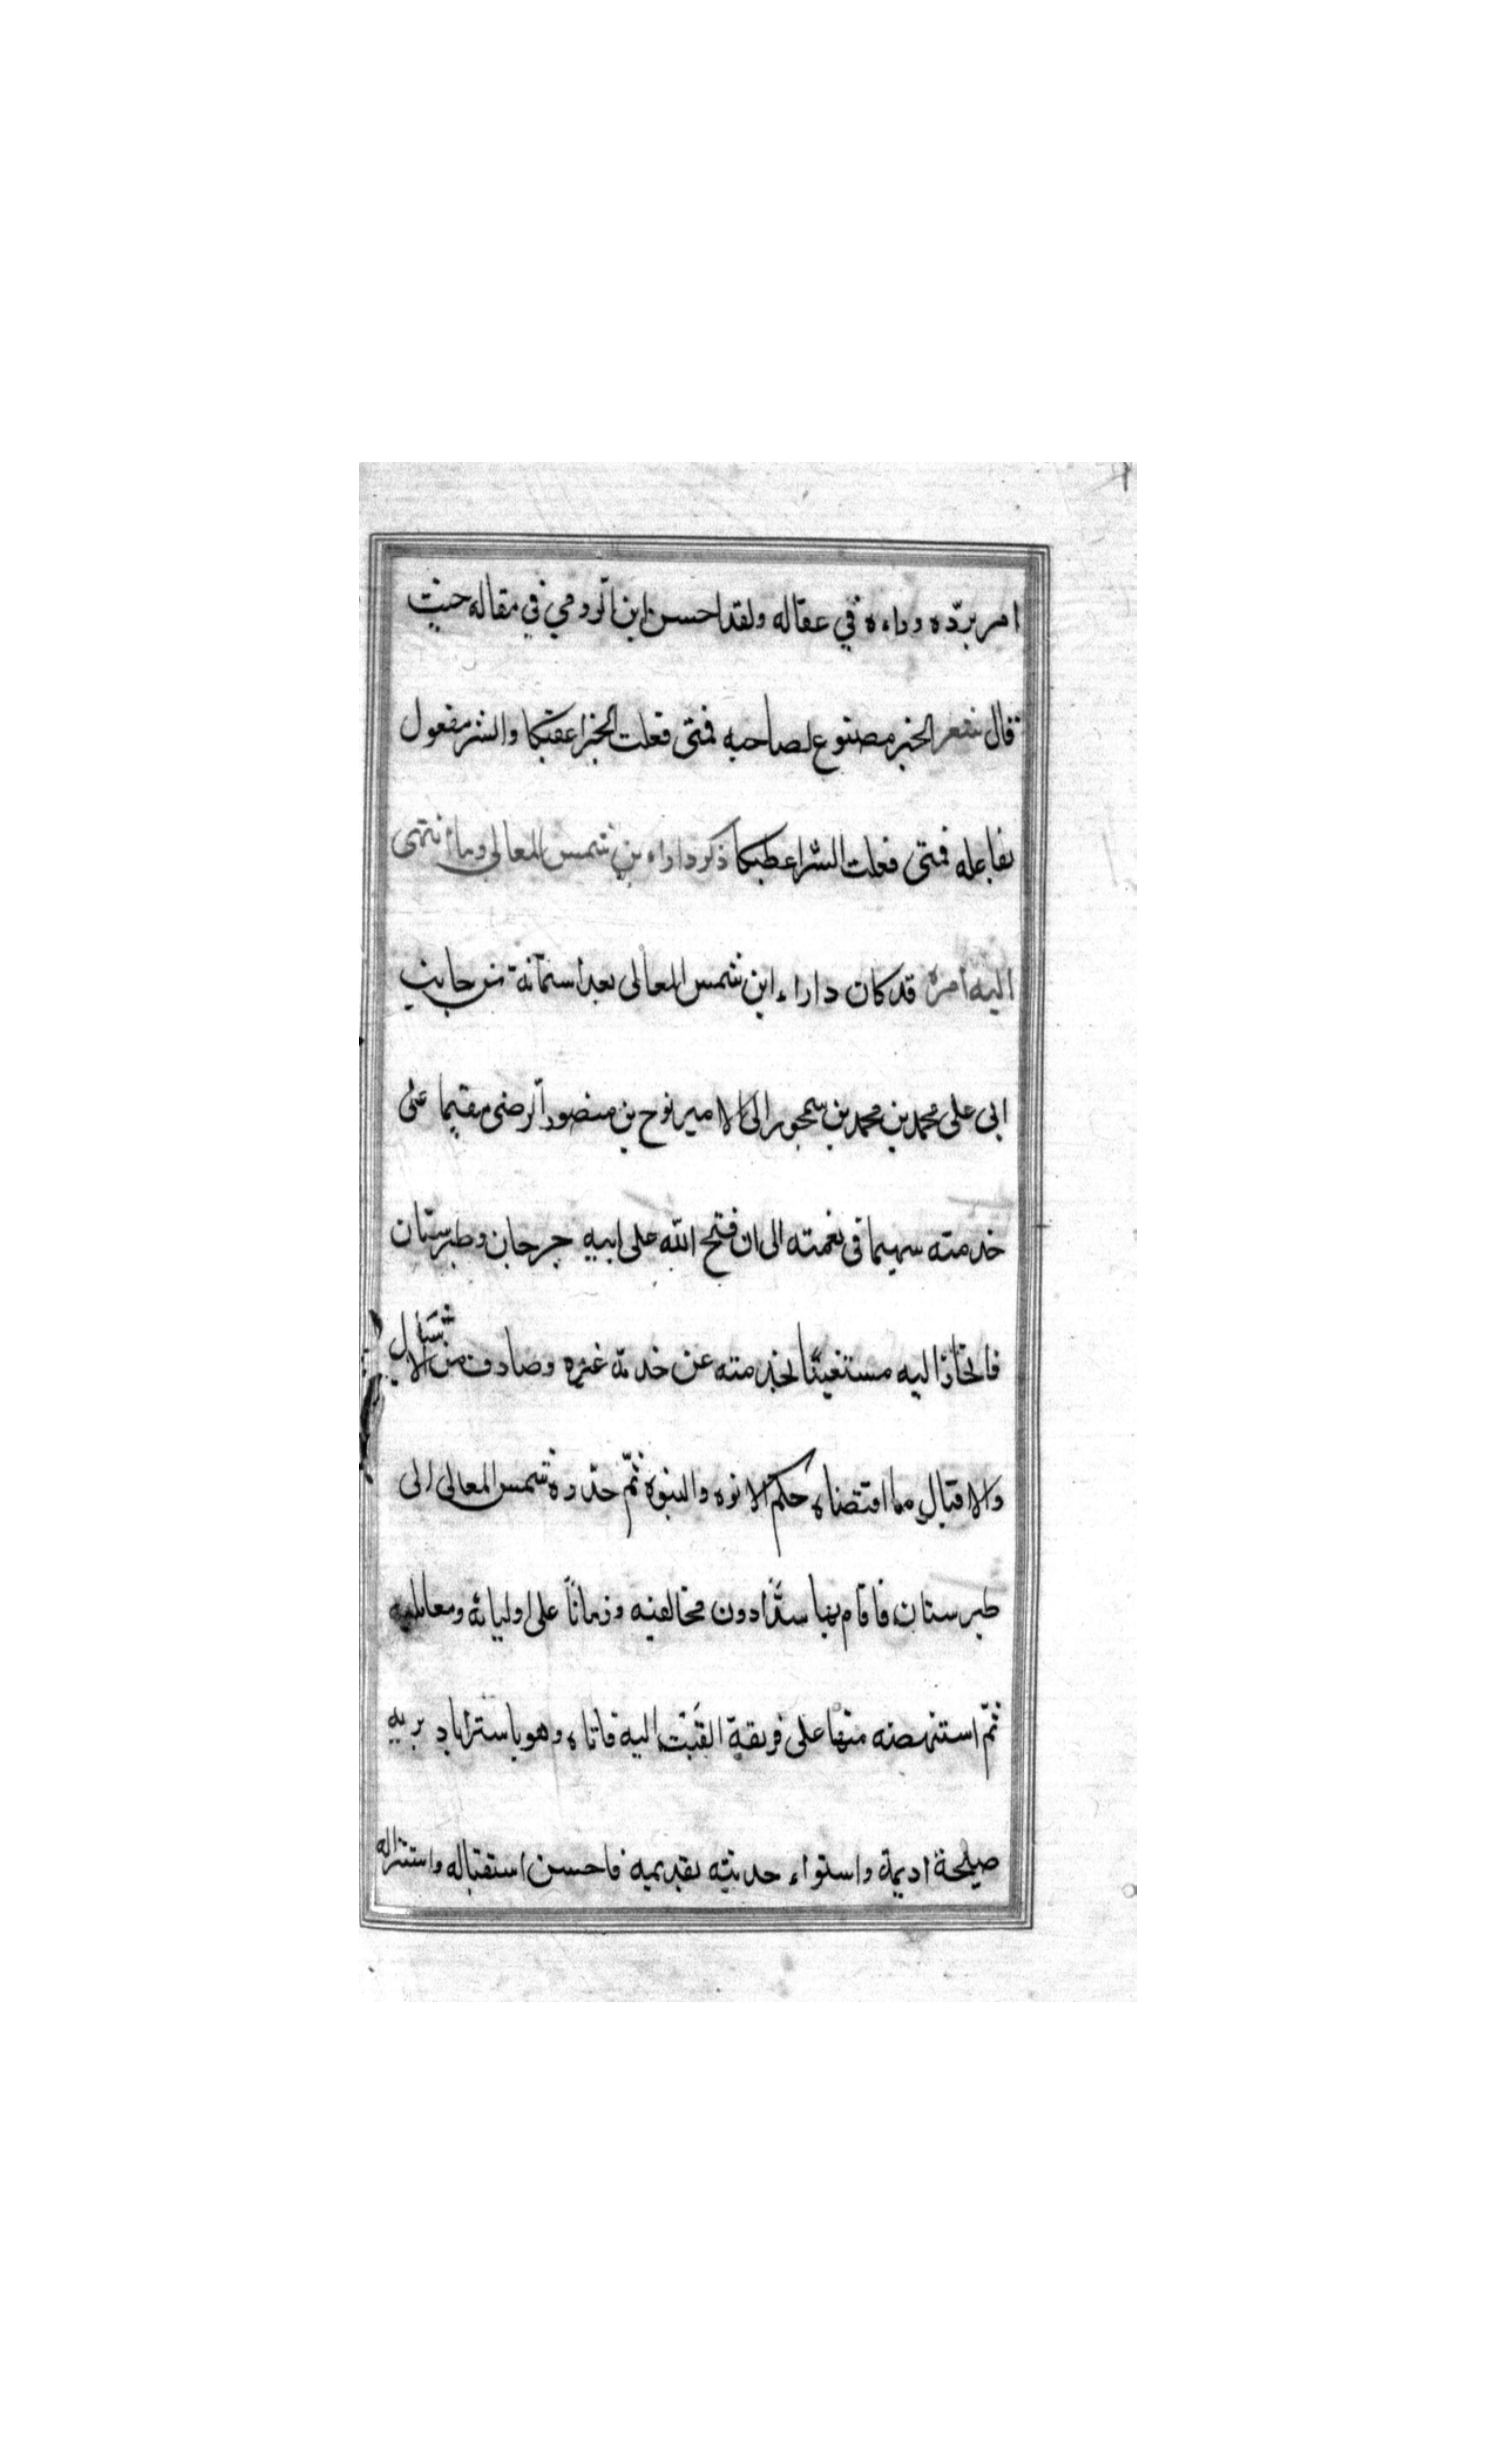 امر بردّه ورداءه في عقاله ولقد احسن ابن الرومي في مقاله حيث
قال شعر الخير مصنوع لصاحبه فمتى فعلت الخير اعقبكا والشر مفعول
بفاعله فمتى فعلت الشر اعطبكا ذكر داراء بن شمس المعالي وما انتهى
اليه امره قد كان داراء ابن شمس المعالى بعد استمآنه من جانب
ابى على محمد بن محمد بن سمجور الى الامير نوح بن منصور الرضى مقيما على
خدمته سهيما فى نعمته الى ان فتح الله على ابيه جرجان وطبرستان
فانحاز اليه مستغنيًا بخدمته عن خدمة غيره وصادف من الاشبال
والاقبال ما اقتضاه حكم الابوه والبنوة ثمّ حدّده شمس المعالى الى
طبرستان فاقام بها سدًّا دون مخالفيه وزمانًا على اوليائه ومعامليه
ثمّ استنهضه منها على فريقة القيت اليه فاتاه وهو باستراباد بريه
صلحة اديمة واستواء حديثه بقديمه فاحسن استقباله واستنزاله